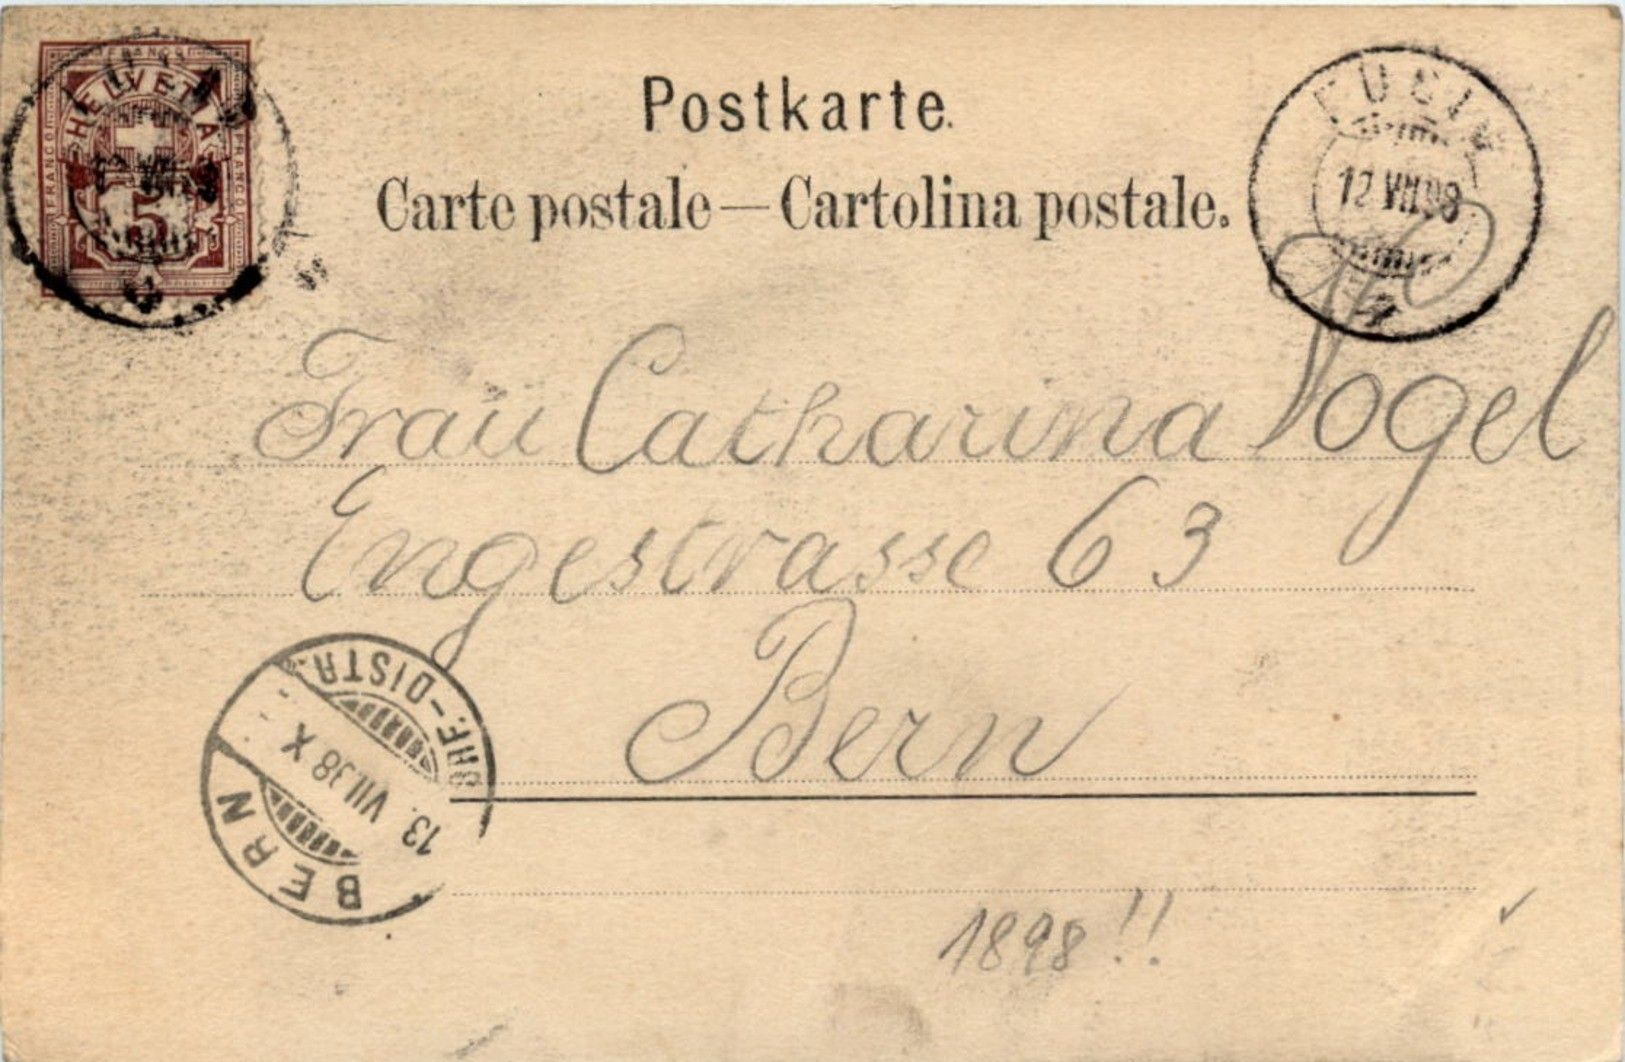 FRANCO
HELVETIA
FRANCO
FRANCO
5
Postkarte.
Carte postale — Cartolina postale.
12 VII 98
Frau Catharina Vogel
Engestrasse 63
Bern
BERN
13. VIII.98 X
BHF.-DISTR.
1898!!